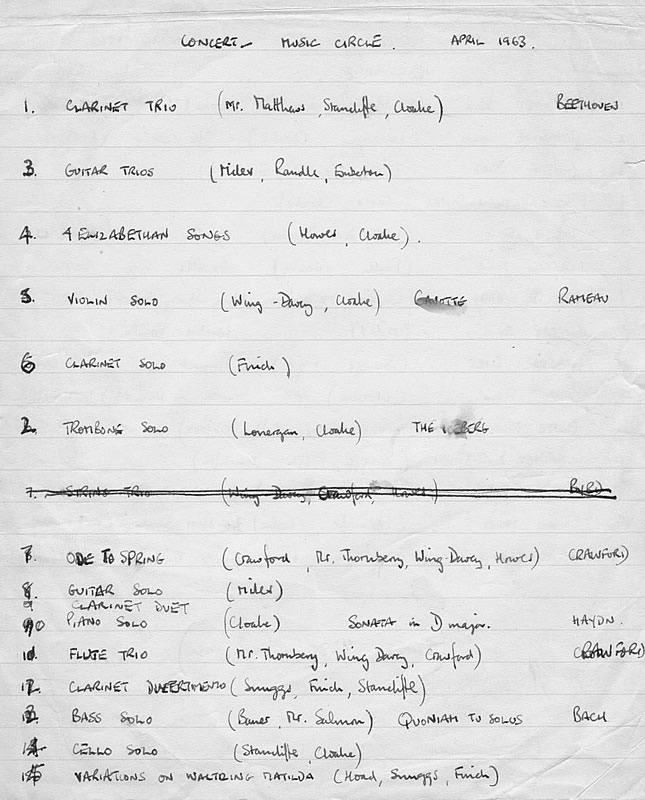 CONCERT - MUSIC CIRCLE. APRIL 1963.
1. CLARINET TRIO (Mr. Matthews, Stancliffe, Cloake) BEETHOVEN
3. GUITAR TRIOS (Miles, Randle,
4. 4 ELIZABETHAN SONGS (Howes, Cloake).
5. VIOLIN SOLO (Wing-Davey, Cloake) GAVOTTE RAMEAU
6 CLARINET SOLO (Finch)
2. TROMBONE SOLO (Lonergan, Cloake) THE ICEBERG
7. STRING TRIO (Wing Davey, Crawford, Howes) BIRD
7. ODE TO SPRING (Crawford, Mr. Thornbery, Wing-Davey, Howes) CRAWFORD
8. GUITAR SOLO (Miles)
9 CLARINET DUET
10 PIANO SOLO (Cloake) SONATA in D major. HAYDN.
11. FLUTE TRIO (Mr. Thornbery, Wing Davey, Crawford) CRAWFORD
12. CLARINET DIVERTIMENTO (Smuggs, Finch, Stancliffe)
13. BASS SOLO (Bauer, Mr. Salmon) QUONIAM TU SOLUS BACH
14 CELLO SOLO (Stancliffe, Cloake)
15 VARIATIONS ON WALTZING MATILDA (Hoad, Smuggs, Finch)